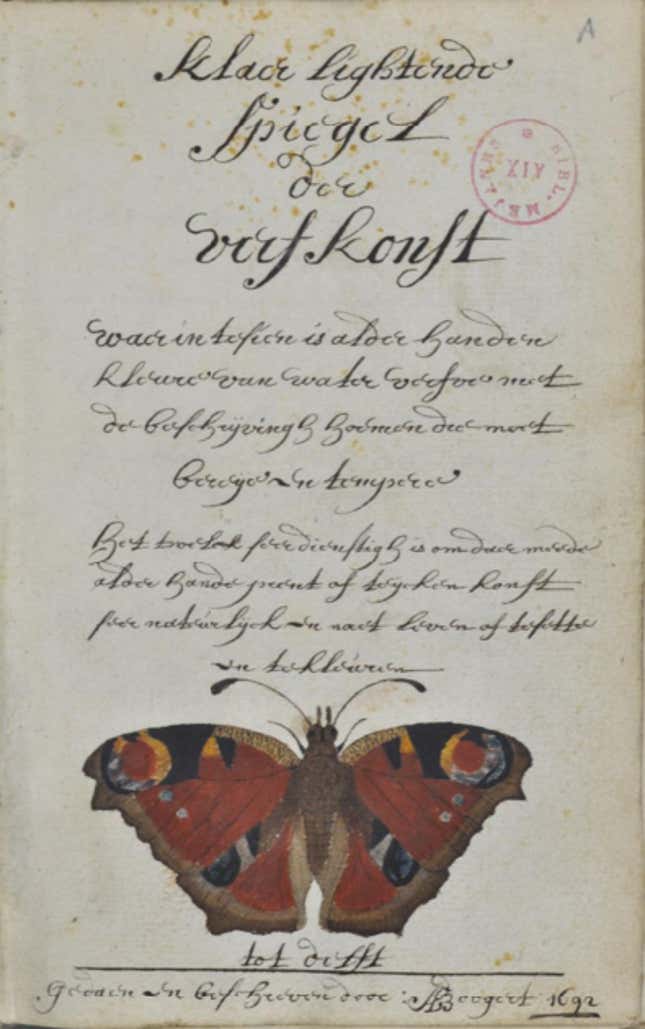 A
Klaer lightende
Spiegel
der
verfkonst
BIBL. MEJANES XIV
waer in tesien is alder handen
kleure van water verfve met
de beschrijvingh hoemen die moet
bereye en tempere
Het twelck seer dienstigh is om daer meede
alder hande prent of teycken konst
seer natuerlyck en naet leven af tesette
en tekleuren
tot delft
Gedaen en beschreven door : A Boogert 1692